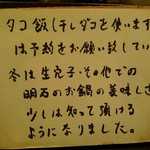 タコ飯(干しダコを使います
は予約をお願い致してい
冬は生穴子・その他での
明石のお鍋の美味しさ
少しは知って頂ける
ようになりました。